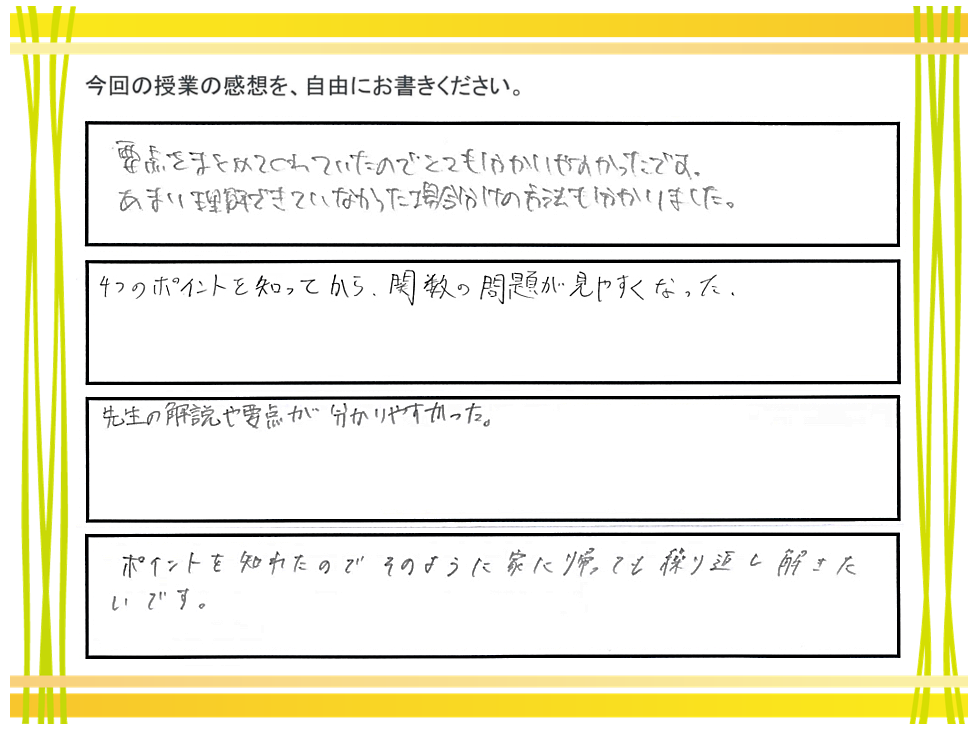 今回の授業の感想を、自由にお書きください。
要点をまとめてくれていたのでとても分かりやすかったです。
あまり理解できていなかった場合分けの方法も分かりました。
4つのポイントを知ってから、関数の問題が見やすくなった.
先生の解説や要点が分かりやすかった。
ポイントを知れたのでそのように家に帰っても繰り返し解きた
いです。